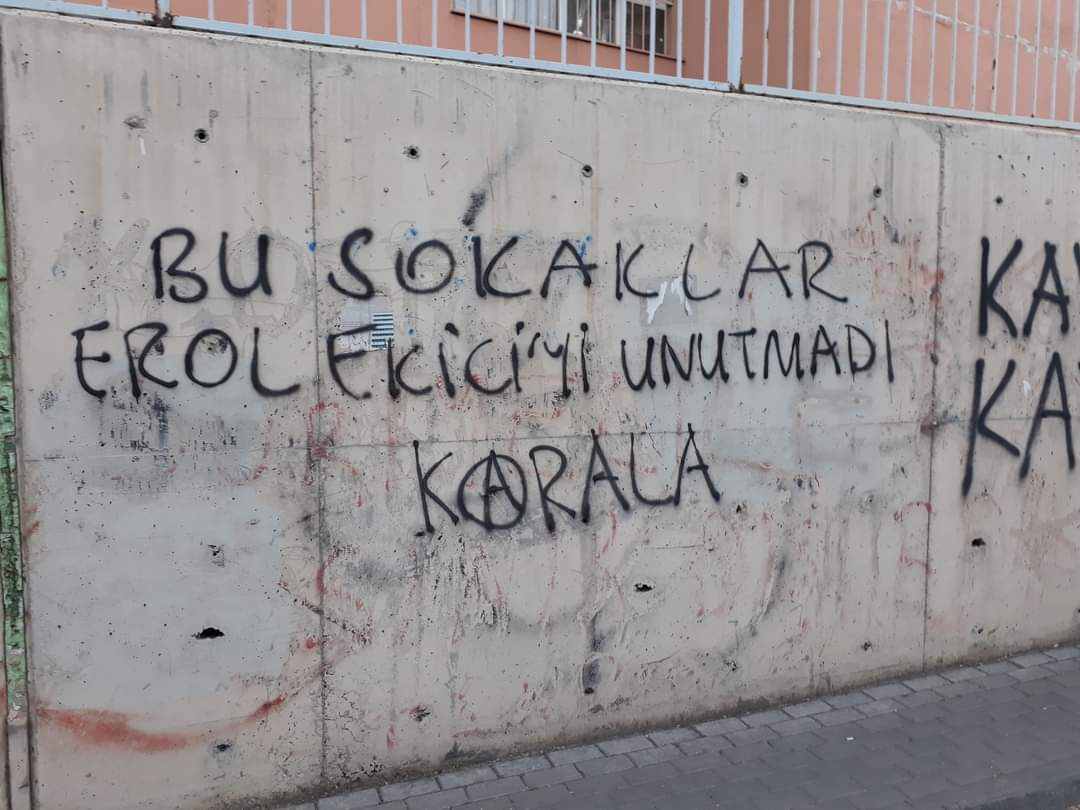 BU SOKAKLAR
EROL EKİCİ'Yİ UNUTMADI
KARALA